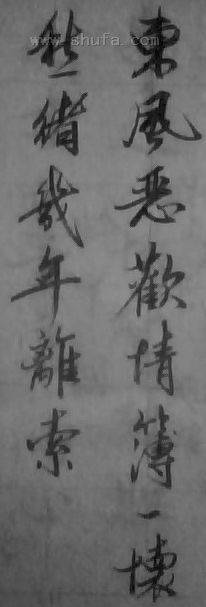 www.shufa.com
東風惡歡情簿一懷
愁緒幾年離索